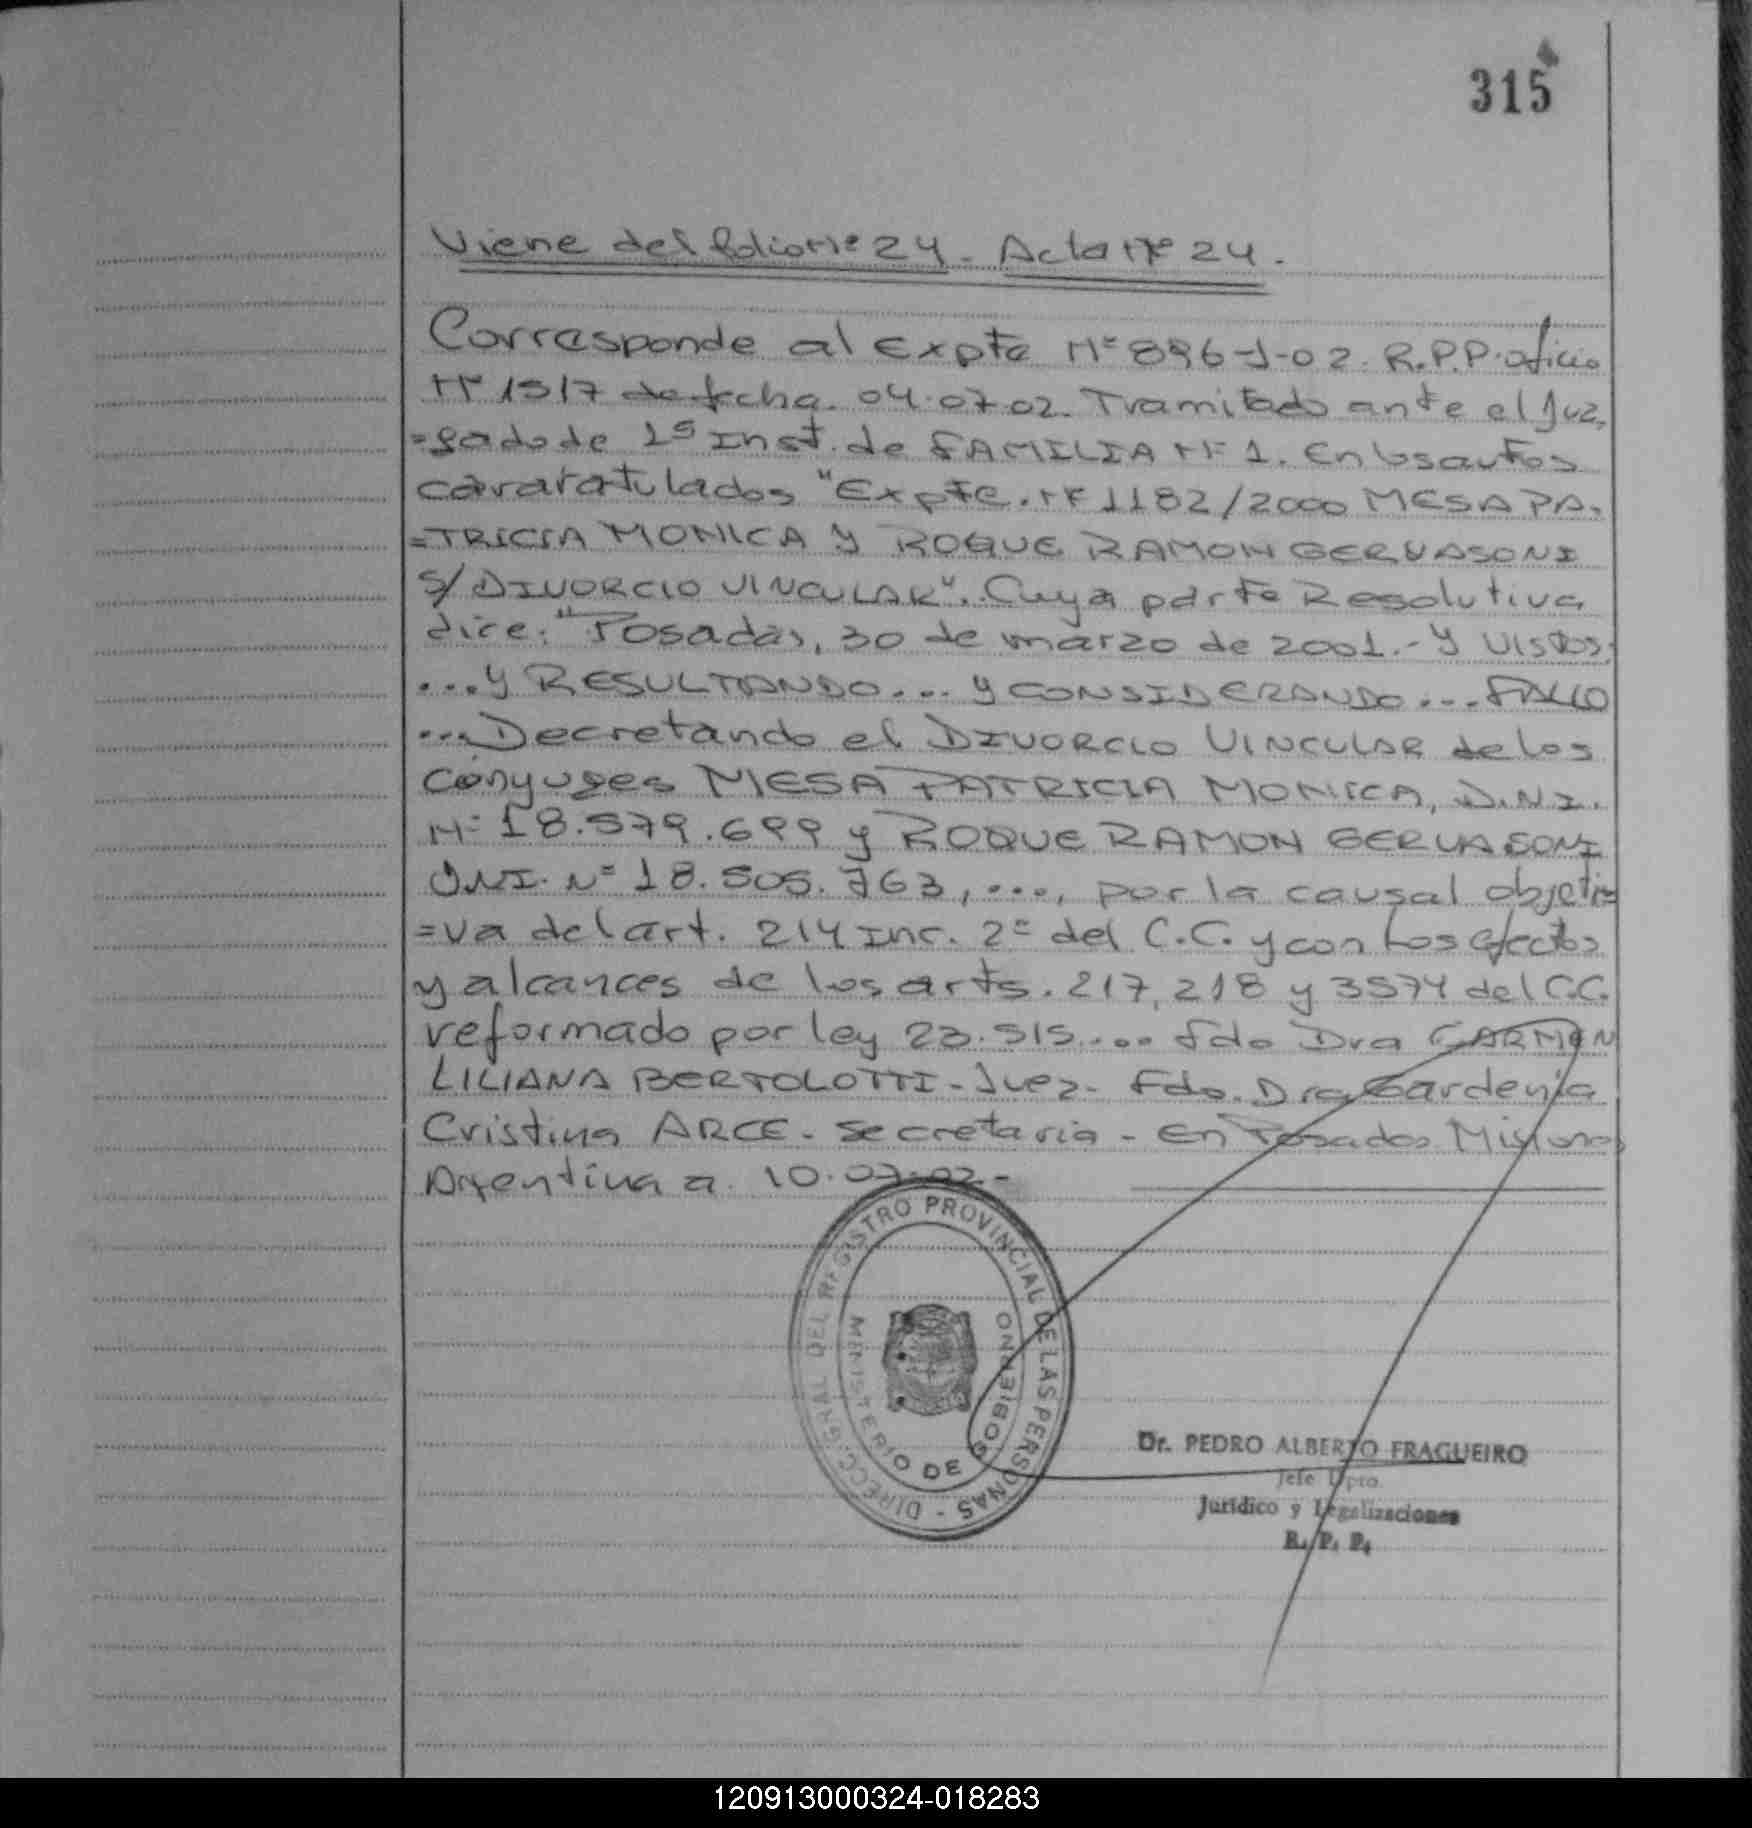 315
Viene del folio Nº 24. Acta Nº 24.
Corresponde al Expte Nº 896-J-02. R.P.P. oficio
Nº 1517 de fecha. 04.07.02. Tramitado ante el Juz,
=gado de 1º Inst. de FAMILIA Nº 1. En los autos
cararatulados "Expte. Nº 1182/2000 MESA PA,
=TRICIA MONICA Y ROQUE RAMON GERVASONI
S/ DIVORCIO VINCULAR". Cuya parte Resolutiva
dice: "Posadas, 30 de marzo de 2001.- Y VISTOS:
...y RESULTANDO... y CONSIDERANDO... FALLO
...Decretando el DIVORCIO VINCULAR de los
cónyuges MESA PATRICIA MONICA, D.N.I.
Nº 18.579.699 y ROQUE RAMON GERVASONI
DNI. Nº 18.505.763, ..., por la causal objeti=
=va del art. 214 Inc. 2º del C.C. y con los efectos
y alcances de los arts. 217, 218 y 3574 del C.C.
reformado por ley 23.515.... Fdo Dra CARMEN
LILIANA BERTOLOTTI - Juez - Fdo. Dra Gardenia
Cristina ARCE - Secretaria - En Posadas Misiones
Argentina a 10.07.02.-
DIRECC. GRAL DEL REGISTRO PROVINCIAL DE LAS PERSONAS -
MINISTERIO DE GOBIERNO
Dr. PEDRO ALBERTO FRAGUEIRO
Jefe Dpto.
Jurídico y Legalizaciones
R. P. P.
120913000324-018283